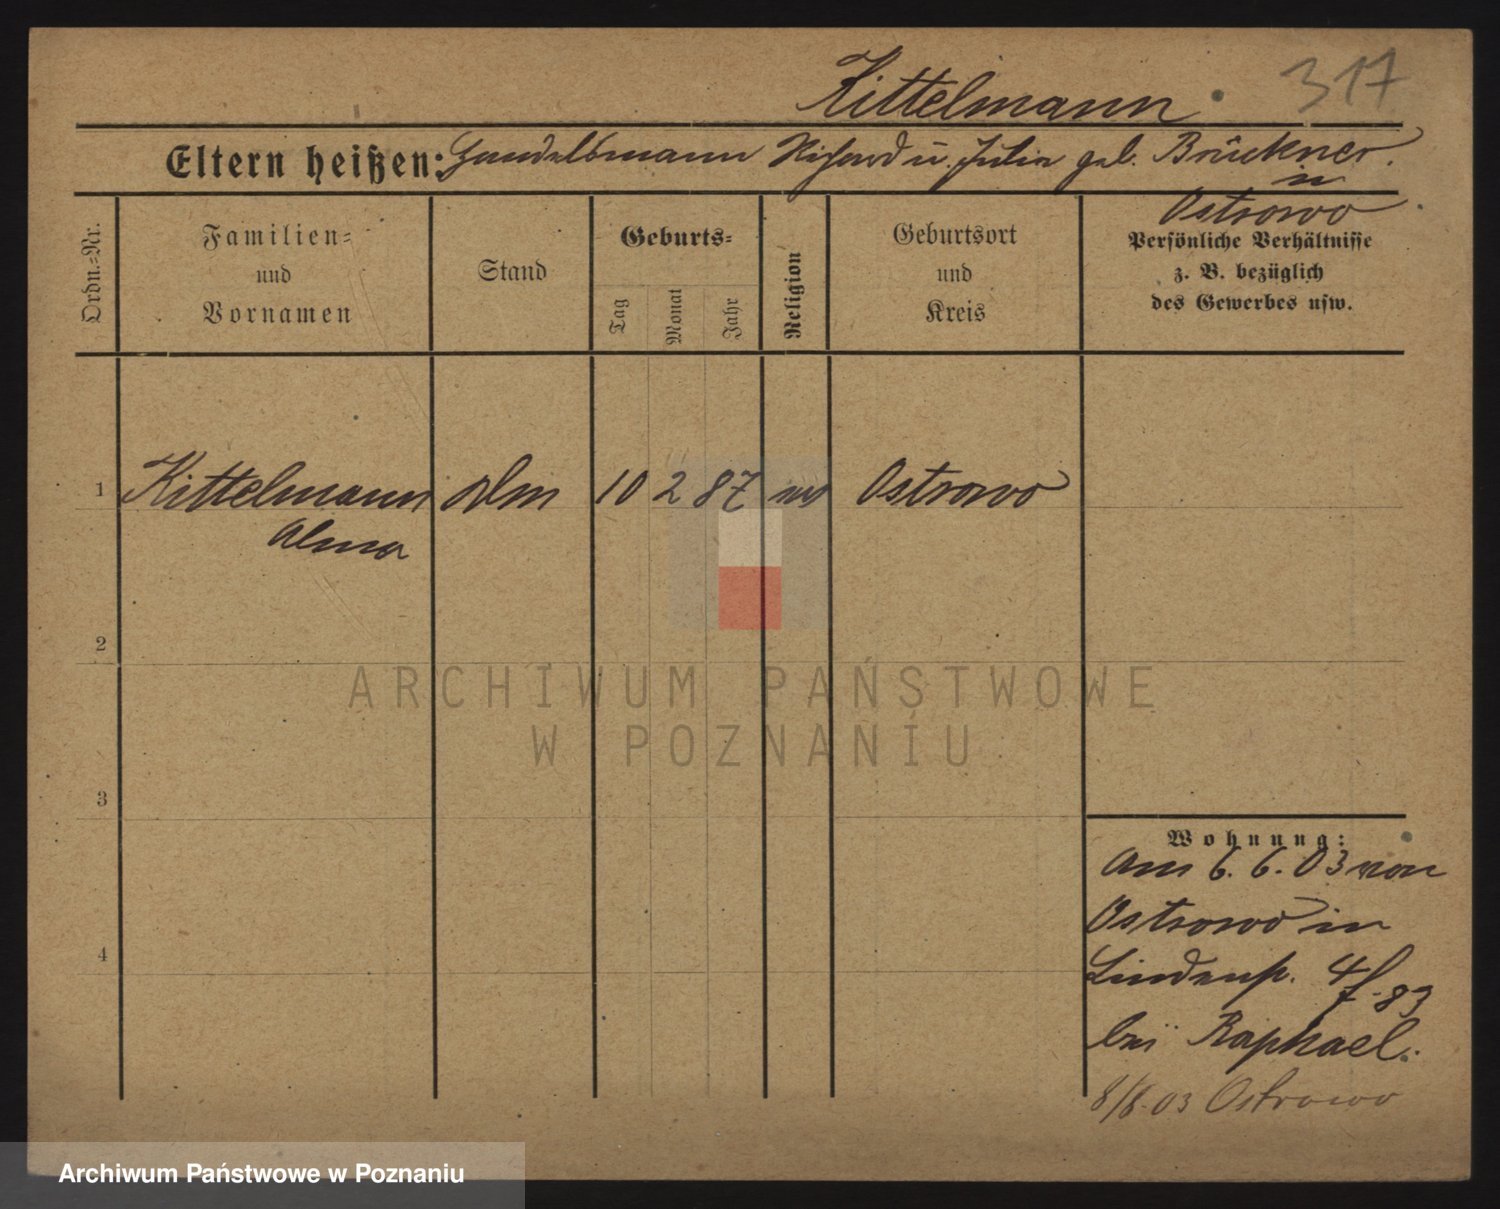 Kittelmann 317
Eltern heißen: Handelsmann Richard u. Julia geb. Brückner
in
Ostrowo
Ordn.-Nr.
Familien-
und
Vornamen
Stand
Geburts-
Tag
Monat
Jahr
Religion
Geburtsort
und
Kreis
Persönliche Verhältnisse
z. B. bezüglich
des Gewerbes usw.
1 Kittelmann 10 2 87 Ostrowo
Alma
2
3
4
Wohnung:
Am 6. 6. 03 von
Ostrowo in
Lindenst.
bei Raphael.
8/8.03 Ostrowo
ARCHIWUM PAŃSTWOWE
W POZNANIU
Archiwum Państwowe w Poznaniu